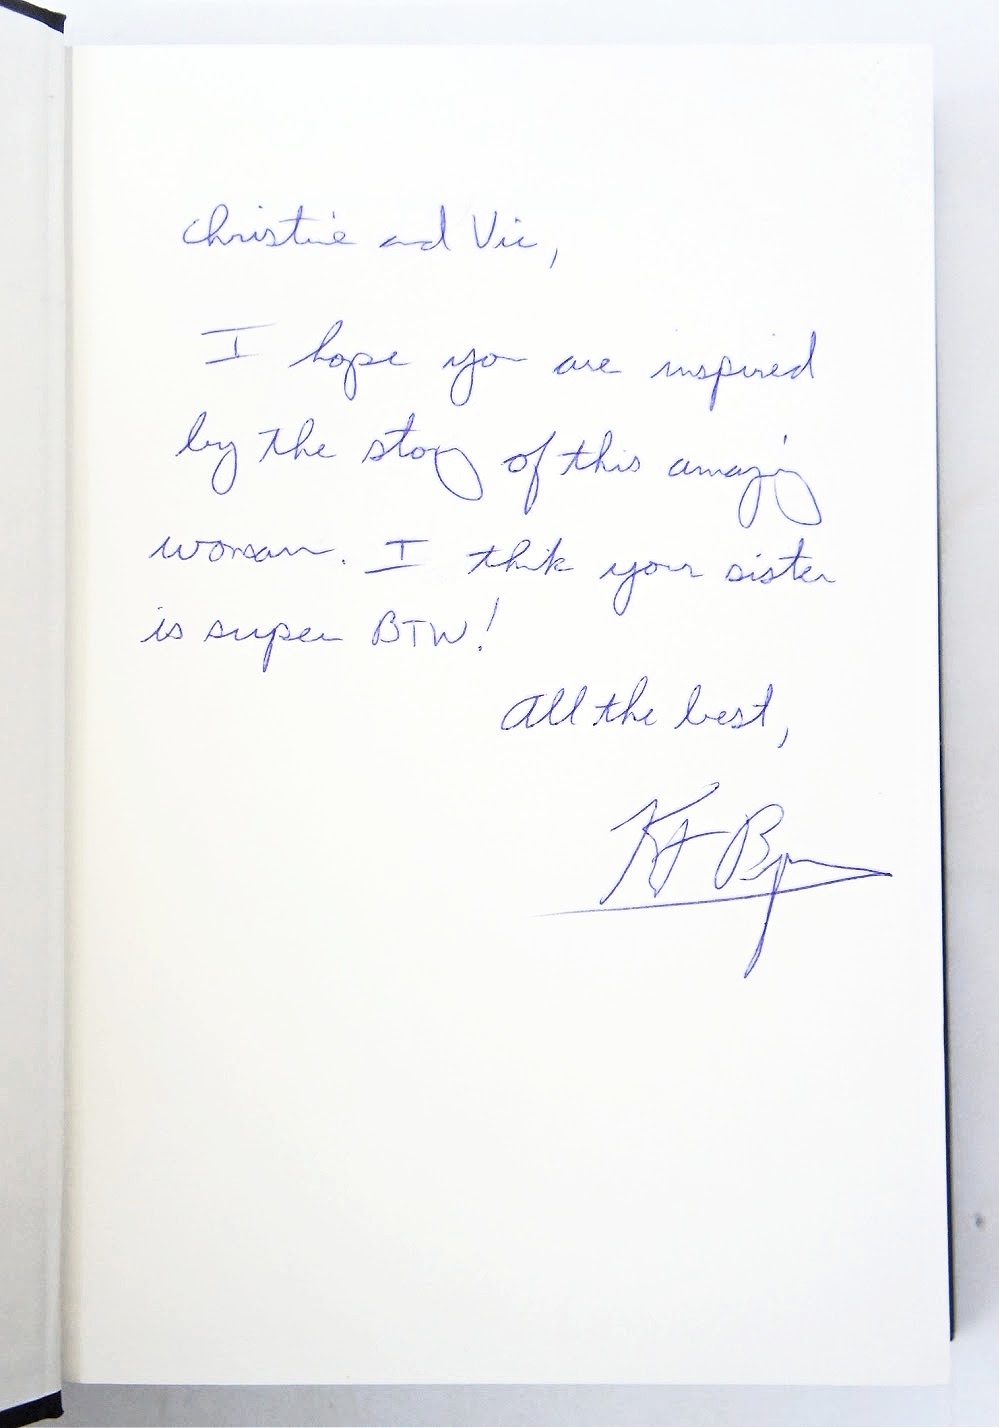 Christine and Vic,
I hope you are inspired
by the story of this amazing
woman. I think your sister
is super BTW!
All the best,